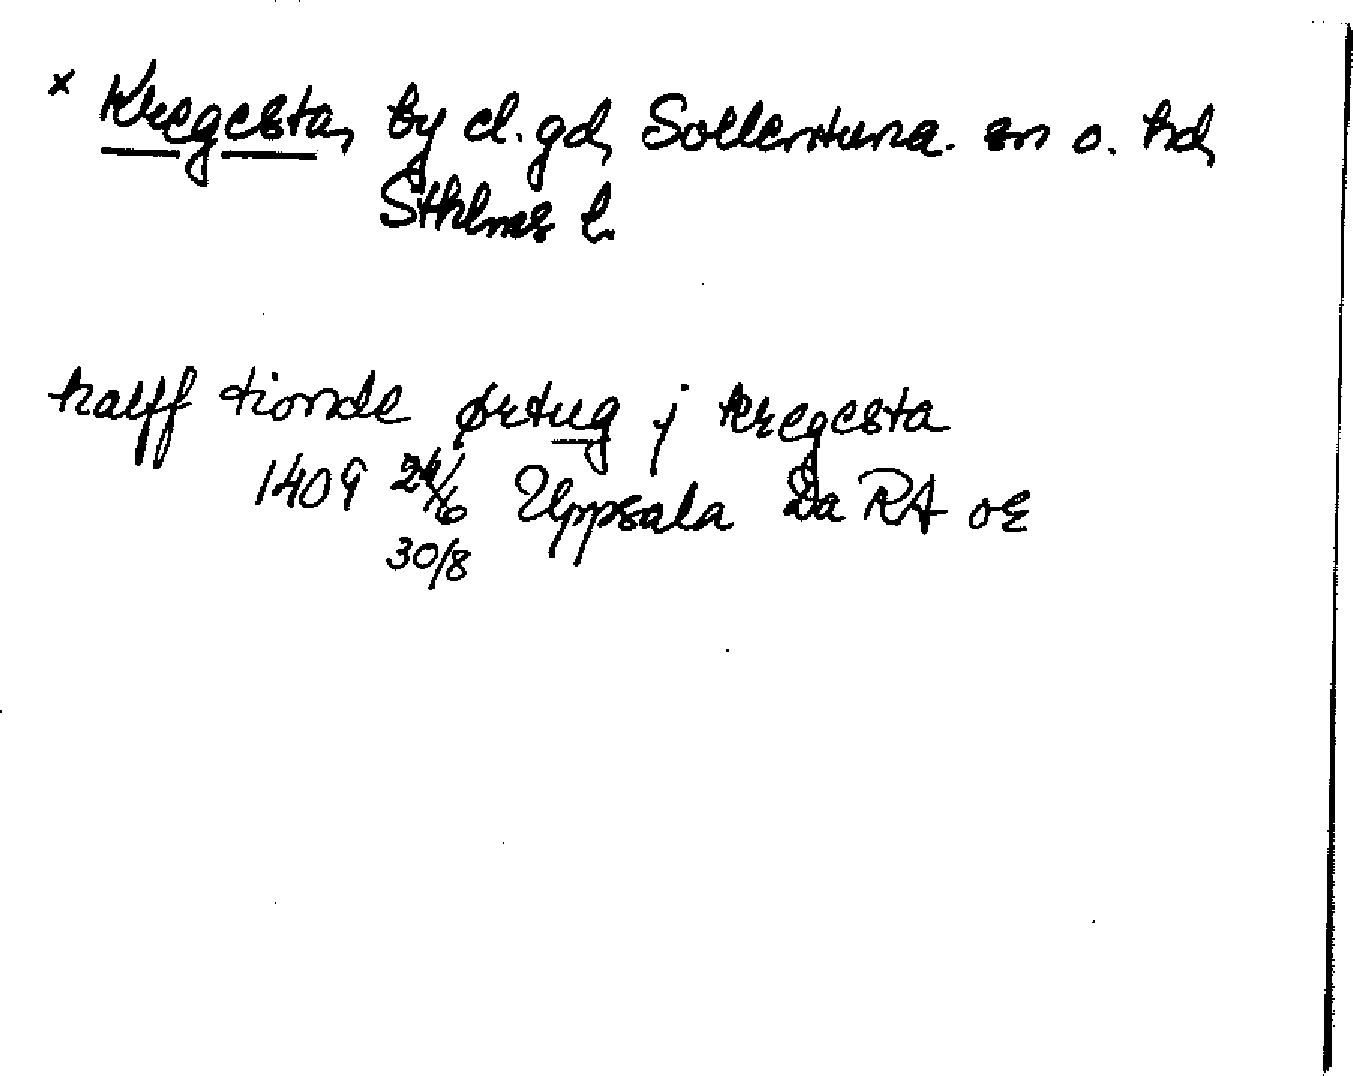 x Kregesta, by el. gd, Sollentuna sn o. hd,
Sthlms l.
halff tionde ørtug j kregesta
1409 24/6 Uppsala Da RA or
30/8